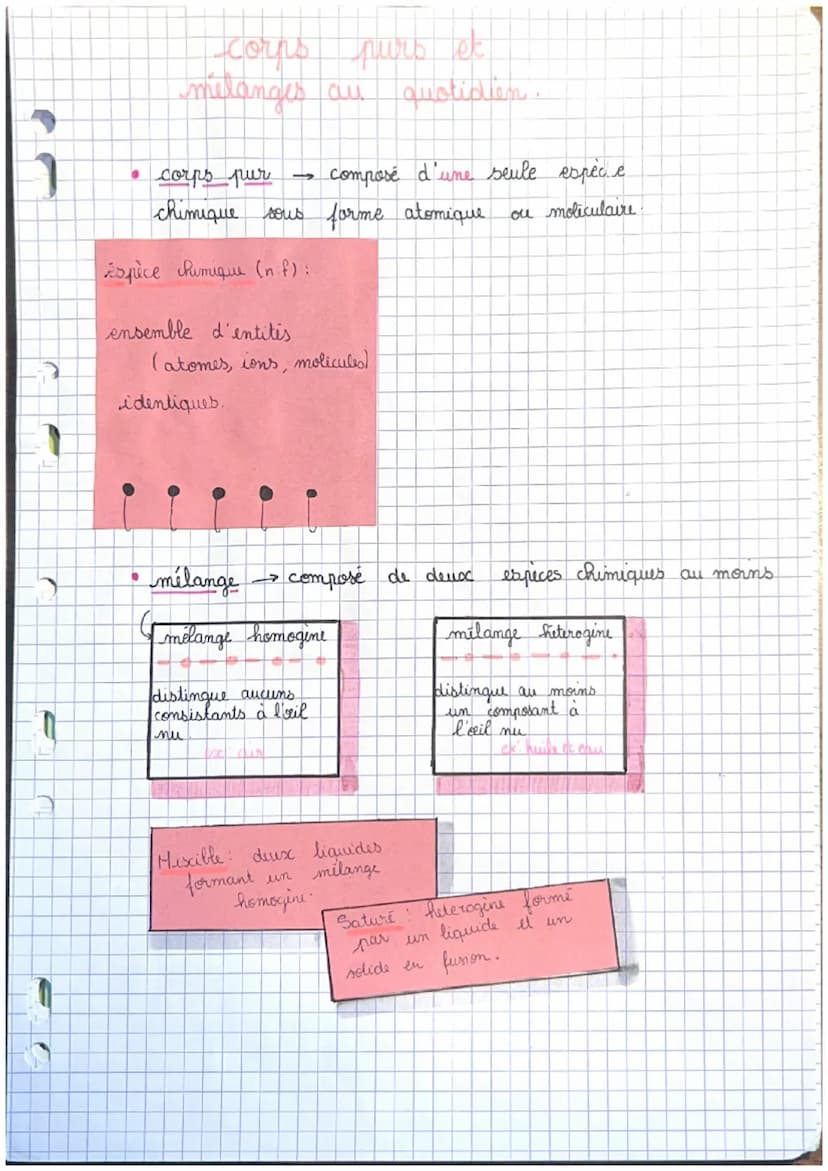 corps purs et
mélanges au quotidien.
• corps pur → composé d'une seule espèce
chimique sous forme atomique ou moléculaire.
Espèce chimique (n.f) :
ensemble d'entités
(atomes, ions, molécules)
identiques.
• mélange → composé de deux espèces chimiques au moins
mélange homogène
distingue aucuns
consistants à l'œil
nu
ex: air
mélange héterogène
distingue au moins
un composant à
l'œil nu
ex: huile et eau
Miscible : deux liquides
formant un mélange
homogène.
Saturé : héterogène formé
par un liquide et un
solide en fusion.